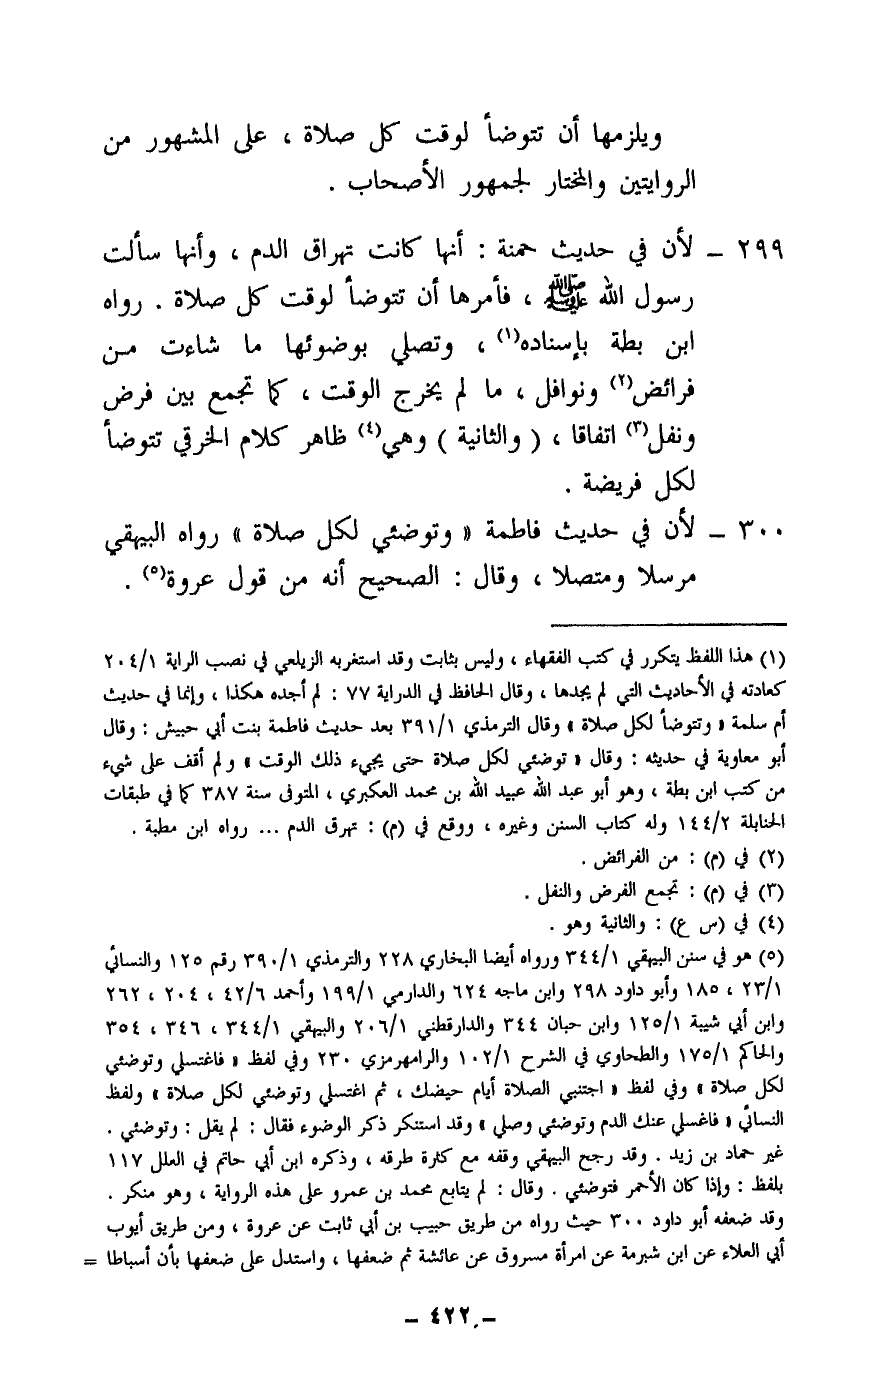 ويلزمها أن تتوضأ لوقت كل صلاة ، على المشهور من
الروايتين والمختار لجمهور الأصحاب .
٢٩٩ – لأن في حديث حمنة : أنها كانت تهراق الدم ، وأنها سألت
رسول الله ﷺ ، فأمرها أن تتوضأ لوقت كل صلاة . رواه
ابن بطة بإسناده(١) ، وتصلي بوضوئها ما شاءت مـن
فرائض(٢) ونوافل ، ما لم يخرج الوقت ، كما تجمع بين فرض
ونفل(٣) اتفاقا ، ( والثانية ) وهي(٤) ظاهر كلام الخرقي تتوضأ
لكل فريضة .
٣٠٠ – لأن في حديث فاطمة « وتوضئي لكل صلاة » رواه البيهقي
مرسلا ومتصلا ، وقال : الصحيح أنه من قول عروة(٥) .
(١) هذا اللفظ يتكرر في كتب الفقهاء ، وليس بثابت وقد استغربه الزيلعي في نصب الراية ٢٠٤/١
كعادته في الأحاديث التي لم يجدها ، وقال الحافظ في الدراية ٧٧ : لم أجده هكذا ، وإنما في حديث
أم سلمة « وتتوضأ لكل صلاة » وقال الترمذي ٣٩١/١ بعد حديث فاطمة بنت أبي حبيش : وقال
أبو معاوية في حديثه : وقال « توضئي لكل صلاة حتى يجيء ذلك الوقت » ولم أقف على شيء
من كتب ابن بطة ، وهو أبو عبد الله عبيد الله بن محمد العكبري ، المتوفى سنة ٣٨٧ كما في طبقات
الحنابلة ١٤٤/٢ وله كتاب السنن وغيره ، ووقع في (م) : تهرق الدم ... رواه ابن مطبة .
(٢) في (م) : من الفرائض .
(٣) في (م) : تجمع الفرض والنفل .
(٤) في (س ع) : والثانية وهو .
(٥) هو في سنن البيهقي ٣٤٤/١ ورواه أيضا البخاري ٢٢٨ والترمذي ٣٩٠/١ رقم ١٢٥ والنسائي
٢٣/١ ، ١٨٥ وأبو داود ٢٩٨ وابن ماجه ٦٢٤ والدارمي ١٩٩/١ وأحمد ٤٢/٦ ، ٢٠٤ ، ٢٦٢
وابن أبي شيبة ١٢٥/١ وابن حبان ٣٤٤ والدارقطني ٢٠٦/١ والبيهقي ٣٤٤/١ ، ٣٤٦ ، ٣٥٤
والحاكم ١٧٥/١ والطحاوي في الشرح ١٠٢/١ والرامهرمزي ٢٣٠ وفي لفظ « فاغتسلي وتوضئي
لكل صلاة » وفي لفظ « اجتنبي الصلاة أيام حيضك ، ثم اغتسلي وتوضئي لكل صلاة » ولفظ
النسائي « فاغسلي عنك الدم وتوضئي وصلي » وقد استنكر ذكر الوضوء فقال : لم يقل : وتوضئي .
غير حماد بن زيد . وقد رجح البيهقي وقفه مع كثرة طرقه ، وذكره ابن أبي حاتم في العلل ١١٧
بلفظ : وإذا كان الأحمر فتوضئي . وقال : لم يتابع محمد بن عمرو على هذه الرواية ، وهو منكر .
وقد ضعفه أبو داود ٣٠٠ حيث رواه من طريق حبيب بن أبي ثابت عن عروة ، ومن طريق أيوب
أبي العلاء عن ابن شبرمة عن امرأة مسروق عن عائشة ثم ضعفها ، واستدل على ضعفها بأن أسباطا =
– ٤٢٢ –